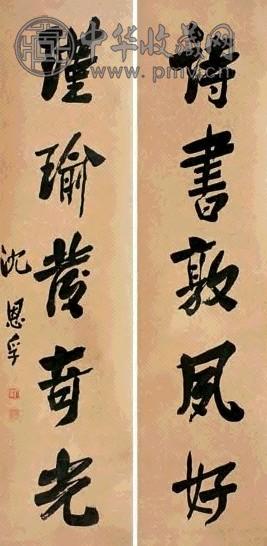 中华收藏网
www.pmv.cn
詩書敦夙好
瑾瑜發奇光
沈恩孚